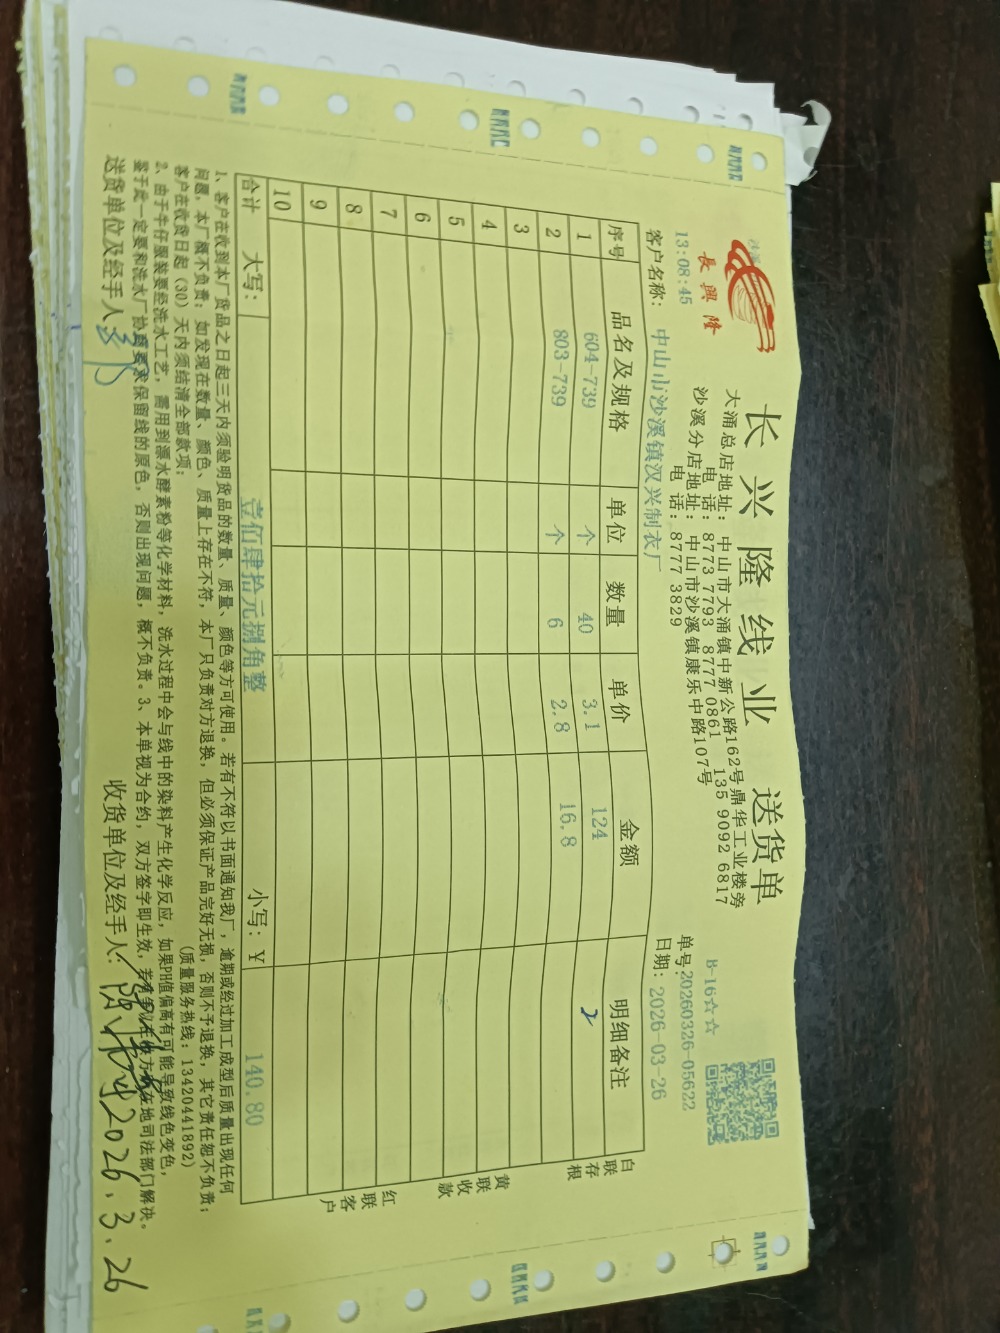 長興隆
长兴隆线业 送货单
大涌总店地址：中山市大涌镇中新公路162号鼎华工业楼旁
电 话：8773 7793 8777 0861 135 9092 6817
沙溪分店地址：中山市沙溪镇康乐中路107号
电 话：8777 3829
B-16☆☆
13:08:45
单号:20260326-05622
客户名称: 中山市沙溪镇汉兴制衣厂
日期: 2026-03-26
序号 品名及规格 单位 数量 单价 金额 明细备注
1 604-739 个 40 3.1 124 2
2 803-739 个 6 2.8 16.8
3
4
5
6
7
8
9
10
合计 大写: 壹佰肆拾元捌角整 小写: ¥ 140.80
白联存根
黄联收款
红联客户
1、客户在收到本厂货品之日起三天内须验明货品的数量、质量、颜色等方可使用。若有不符以书面通知我厂，逾期或经过加工成型后质量出现任何
问题，本厂概不负责；如发现在数量、颜色、质量上存在不符，本厂只负责对方退换，但必须保证产品完好无损，否则不予退换，其它责任恕不负责；
客户在收货日起（30）天内须结清全部款项；
（质量服务热线：13420441892）
2、由于牛仔服装要经洗水工艺，需用到漂水酵素粉等化学材料，洗水过程中会与线中的染料产生化学反应，如果PH值偏高有可能导致线色变色，
鉴于此一定要和洗水厂协商要求保留线的原色，否则出现问题，概不负责。3、本单视为合约，双方签字即生效，若有争议在供方所在地司法部门解决。
送货单位及经手人:
收货单位及经手人: 2026.3.26